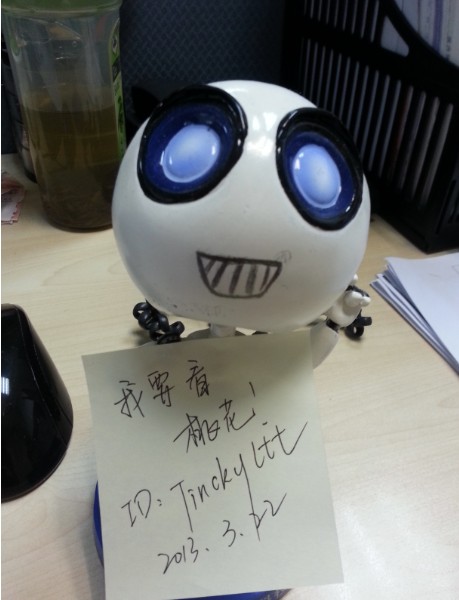 我要看
桃花!
ID: Jinckyltt
2013.3.22